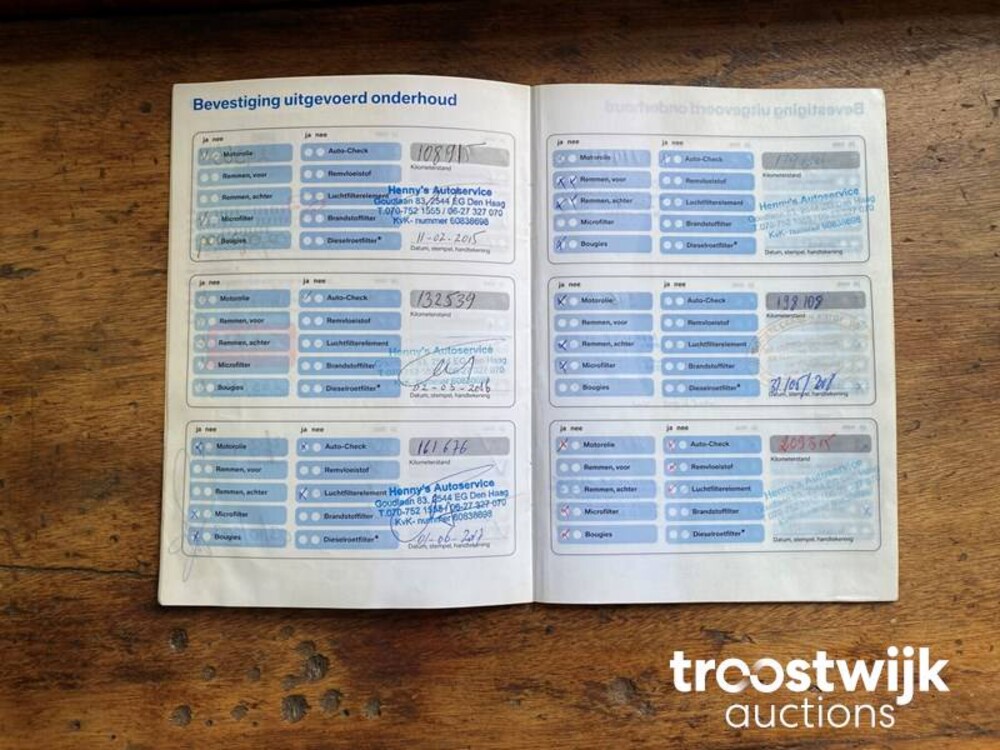 Bevestiging uitgevoerd onderhoud
ja nee
ja nee
Motorolie
Auto-Check
108915
Kilometerstand
Remmen, voor
Remvloeistof
Remmen, achter
Luchtfilterelement
Henny's Autoservice
Goudlaan 83, 2544 EG Den Haag
T.070-752 1555 / 06-27 327 070
KvK- nummer 60838698
Microfilter
Brandstoffilter
Bougies
Dieselroetfilter*
11-02-2015
Datum, stempel, handtekening
ja nee
ja nee
Motorolie
Auto-Check
132539
Kilometerstand
Remmen, voor
Remvloeistof
Remmen, achter
Luchtfilterelement
Henny's Autoservice
Microfilter
Brandstoffilter
Bougies
Dieselroetfilter*
02-03-2016
Datum, stempel, handtekening
ja nee
ja nee
Motorolie
Auto-Check
161676
Kilometerstand
Remmen, voor
Remvloeistof
Remmen, achter
Luchtfilterelement
Henny's Autoservice
Goudlaan 83, 2544 EG Den Haag
T.070-752 1555 / 06-27 327 070
KvK- nummer 60838698
Microfilter
Brandstoffilter
Bougies
Dieselroetfilter*
Datum, stempel, handtekening
ja nee
ja nee
Motorolie
Auto-Check
Kilometerstand
Remmen, voor
Remvloeistof
Remmen, achter
Luchtfilterelement
Henny's Autoservice
Microfilter
Brandstoffilter
Bougies
Dieselroetfilter*
Datum, stempel, handtekening
ja nee
ja nee
Motorolie
Auto-Check
198108
Kilometerstand
Remmen, voor
Remvloeistof
Remmen, achter
Luchtfilterelement
Microfilter
Brandstoffilter
Bougies
Dieselroetfilter*
31/05/2018
Datum, stempel, handtekening
ja nee
ja nee
Motorolie
Auto-Check
Kilometerstand
Remmen, voor
Remvloeistof
Remmen, achter
Luchtfilterelement
Henny's Autoservice
Microfilter
Brandstoffilter
Bougies
Dieselroetfilter*
Datum, stempel, handtekening
troostwijk
auctions